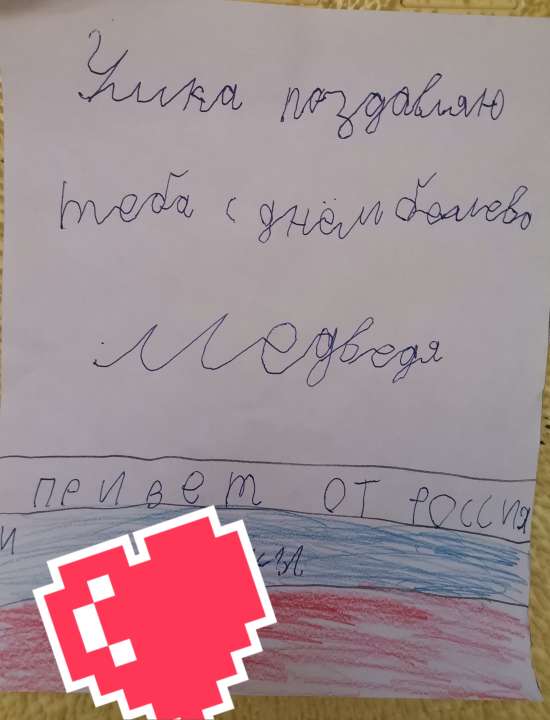 Улика поздавляю
теба с днём бельево
Медведя
привет от россия
и